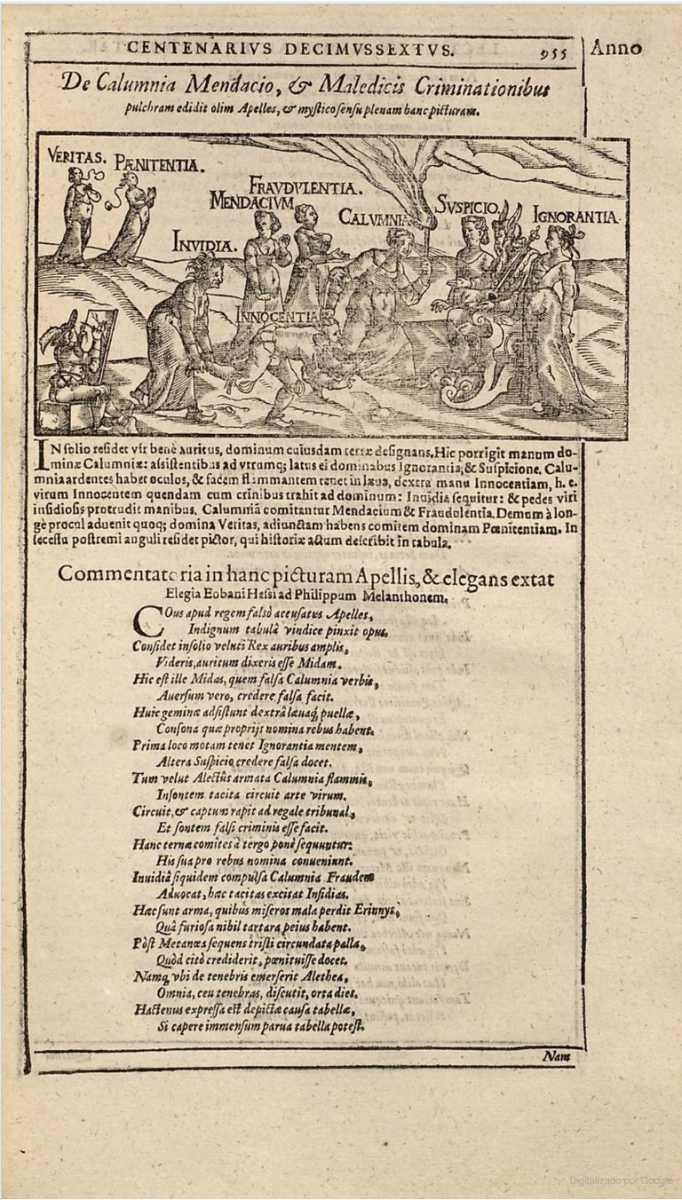 CENTENARIVS DECIMVSSEXTVS. 955 Anno
De Calumnia Mendacio, & Maledicis Criminationibus
pulchram edidit olim Apelles, & mystico sensu plenam hanc picturam.
VERITAS. PÆNITENTIA.
FRAVDVLENTIA.
MENDACIVM
CALVMNIA
SVSPICIO
IGNORANTIA.
INVIDIA.
INNOCENTIA
IN solio residet vir benè auritus, dominum cuiusdam terræ designans. Hic porrigit manum do-
minæ Calumniæ: assistentibus ad vtrumq; latus ei dominabus Ignorantia, & Suspicione. Calu-
mnia ardentes habet oculos, & facem flammantem tenet in læua, dextra manu Innocentiam, h. e.
virum Innocentem quendam cum crinibus trahit ad dominum: Inuidia sequitur: & pedes viri
insidiosis protrudit manibus. Calumniã comitantur Mendacium & Fraudolentia. Demum à lon-
gè procul aduenit quoq; domina Veritas, adiunctam habens comitem dominam Pœnitentiam. In
secessu postremi anguli residet pictor, qui historiæ actum describit in tabula.
Commentatoria in hanc picturam Apellis, & elegans extat
Elegia Eobani Hessi ad Philippum Melanthonem.
COus apud regem falsò accusatus Apelles,
Indignum tabulâ vindice pinxit opus.
Considet in solio veluti Rex auribus amplis,
Videris, auritum dixeris esse Midam.
Hic est ille Midas, quem falsa Calumnia verbis,
Auersum vero, credere falsa facit.
Huic geminæ adsistunt dextrâ læuaq; puellæ,
Consona quæ proprijs nomina rebus habent.
Prima loco motam tenet Ignorantia mentem,
Altera Suspicio, credere falsa docet.
Tum velut Alectùs armata Calumnia flammis,
Insontem tacita circuit arte virum.
Circuit, & captum rapit ad regale tribunal,
Et sontem falsi criminis esse facit.
Hanc ternæ comites à tergo ponè sequuntur:
His sua pro rebus nomina conueniunt.
Inuidiâ siquidem compulsa Calumnia Fraudem
Aduocat, hæc tacitas excitat Insidias.
Hæc sunt arma, quibus miseros mala perdit Erinnys,
Quâ furiosa nihil tartara peius habent.
Pòst Metanœa sequens tristi circundata palla,
Quòd citò crediderit, pœnituisse docet.
Namq, vbi de tenebris emerserit Alethea,
Omnia, ceu tenebras, discutit, orta dies.
Hactenus expressa est depictæ causa tabellæ,
Si capere immensum parua tabella potest.
Nam
Digitalizado por Google